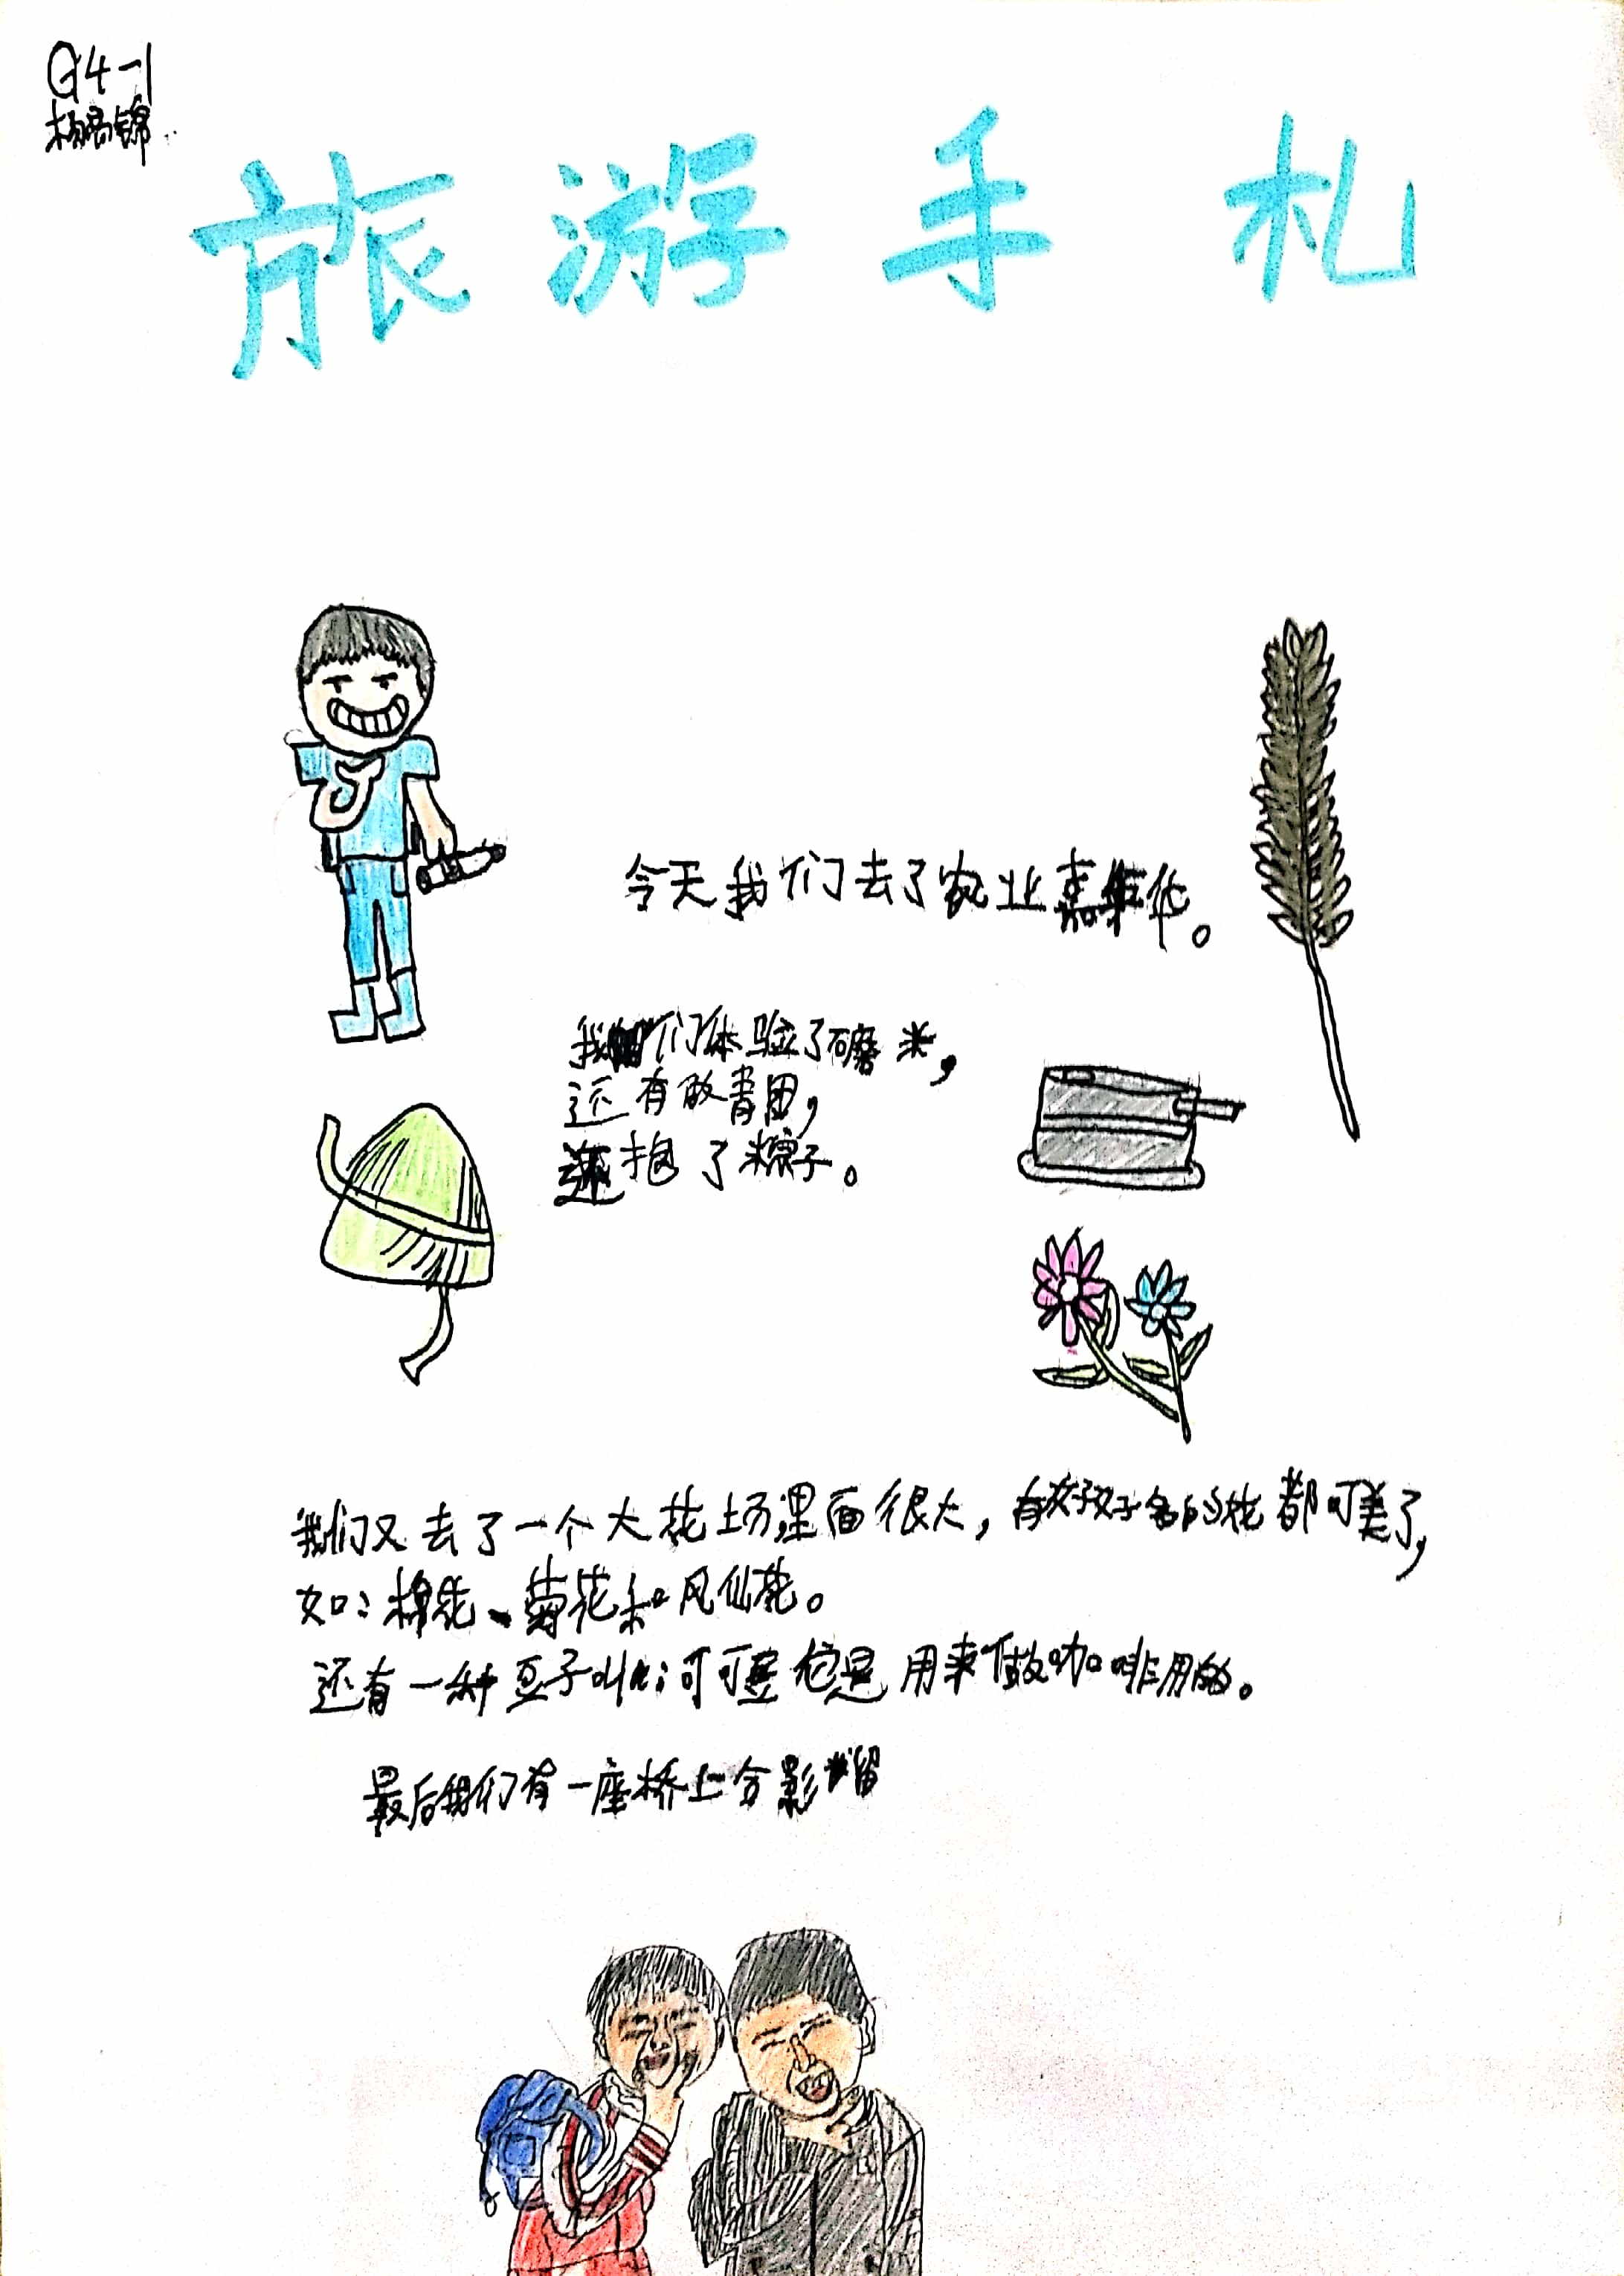 G4-1
杨高锦
旅游手札
今天我们去了农业嘉年华。
我们体验了磨米，
还有做青团，
还抱了粽子。
我们又去了一个大花场里面很大，有好多的花都可美了，
如：棉花、菊花和风仙花。
还有一种豆子叫：可可豆它是用来做咖啡用的。
最后我们有一座桥上合影留